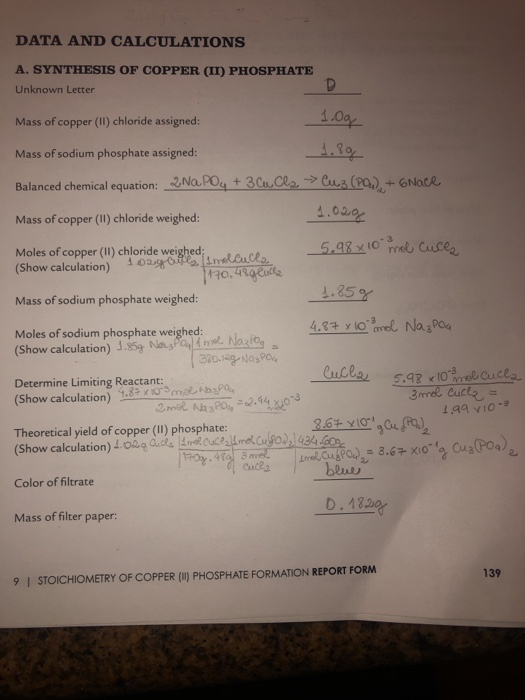 DATA AND CALCULATIONS
A. SYNTHESIS OF COPPER (II) PHOSPHATE
Unknown Letter D
Mass of copper (II) chloride assigned: 1.0g
Mass of sodium phosphate assigned: 1.8g
Balanced chemical equation: 2NaPO4 + 3CuCl2 → Cu3(PO4)2 + 6NaCl
Mass of copper (II) chloride weighed: 1.02g
Moles of copper (II) chloride weighed: 5.98 x 10⁻³ mol CuCl2
(Show calculation) 1.02g CuCl2 | 1 mol CuCl2
170.48g CuCl2
Mass of sodium phosphate weighed: 1.85g
Moles of sodium phosphate weighed: 4.87 x 10⁻³ mol Na3PO4
(Show calculation) 1.85g Na3PO4 | 1 mol Na3PO4 =
380.12g Na3PO4
Determine Limiting Reactant: CuCl2 5.98 x 10⁻³ mol CuCl2
(Show calculation) 4.87 x 10⁻³ mol Na3PO4 3 mol CuCl2 =
2 mol Na3PO4 = 2.44 x 10⁻³ 1.99 x 10⁻³
Theoretical yield of copper (II) phosphate: 8.67 x 10⁻¹ g Cu3(PO4)2
(Show calculation) 1.02g CuCl2 | 1 mol CuCl2 | 1 mol Cu3(PO4)2 | 434.60g
170g.48g | 3 mol CuCl2 | 1 mol Cu3(PO4)2 = 3.67 x 10⁻¹ g Cu3(PO4)2
Color of filtrate blue
Mass of filter paper: 0.182g
9 | STOICHIOMETRY OF COPPER (II) PHOSPHATE FORMATION REPORT FORM 139